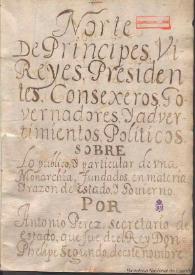 Norte
De Principes, Vi
Reyes, Presiden
tes, Consexeros, Go
vernadores, Y adver
timientos, Politicos
SOBRE
Lo publico, y particular de vna
Monarchia, Fundados en materia
de razon de Estado, y Govierno.
POR
Antonio Perez, secretario de
Estado, que fue del Rey Don
Phelipe Segundo, de este nombre